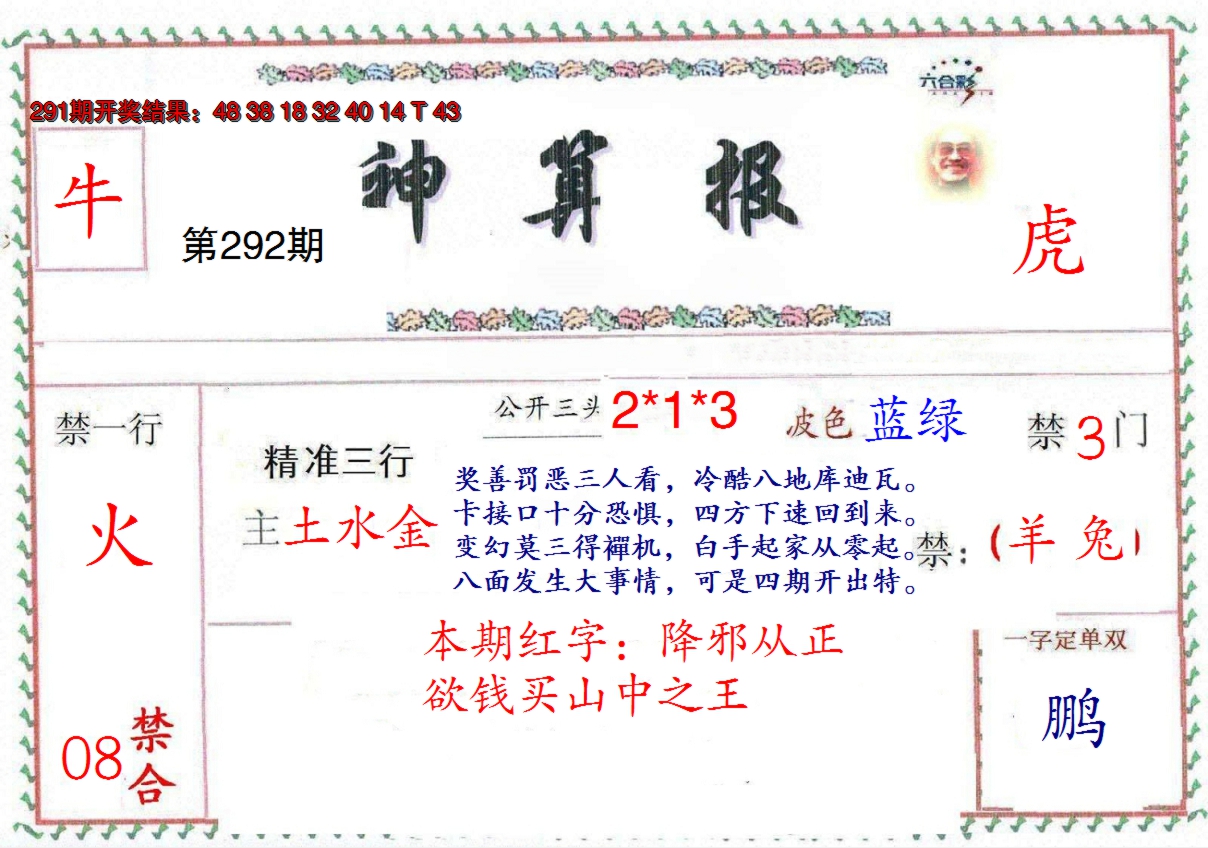 六合彩
291期开奖结果：48 38 18 32 40 14 T 43
牛
神算报
第292期
虎
禁一行
火
08
禁合
精准三行
主土水金
公开三头 2*1*3
波色 蓝绿
禁3门
奖善罚恶三人看，冷酷八地库迪瓦。
卡接口十分恐惧，四方下速回到来。
变幻莫三得襌机，白手起家从零起。
八面发生大事情，可是四期开出特。
禁：（羊 兔）
本期红字：降邪从正
欲钱买山中之王
一字定单双
鹏